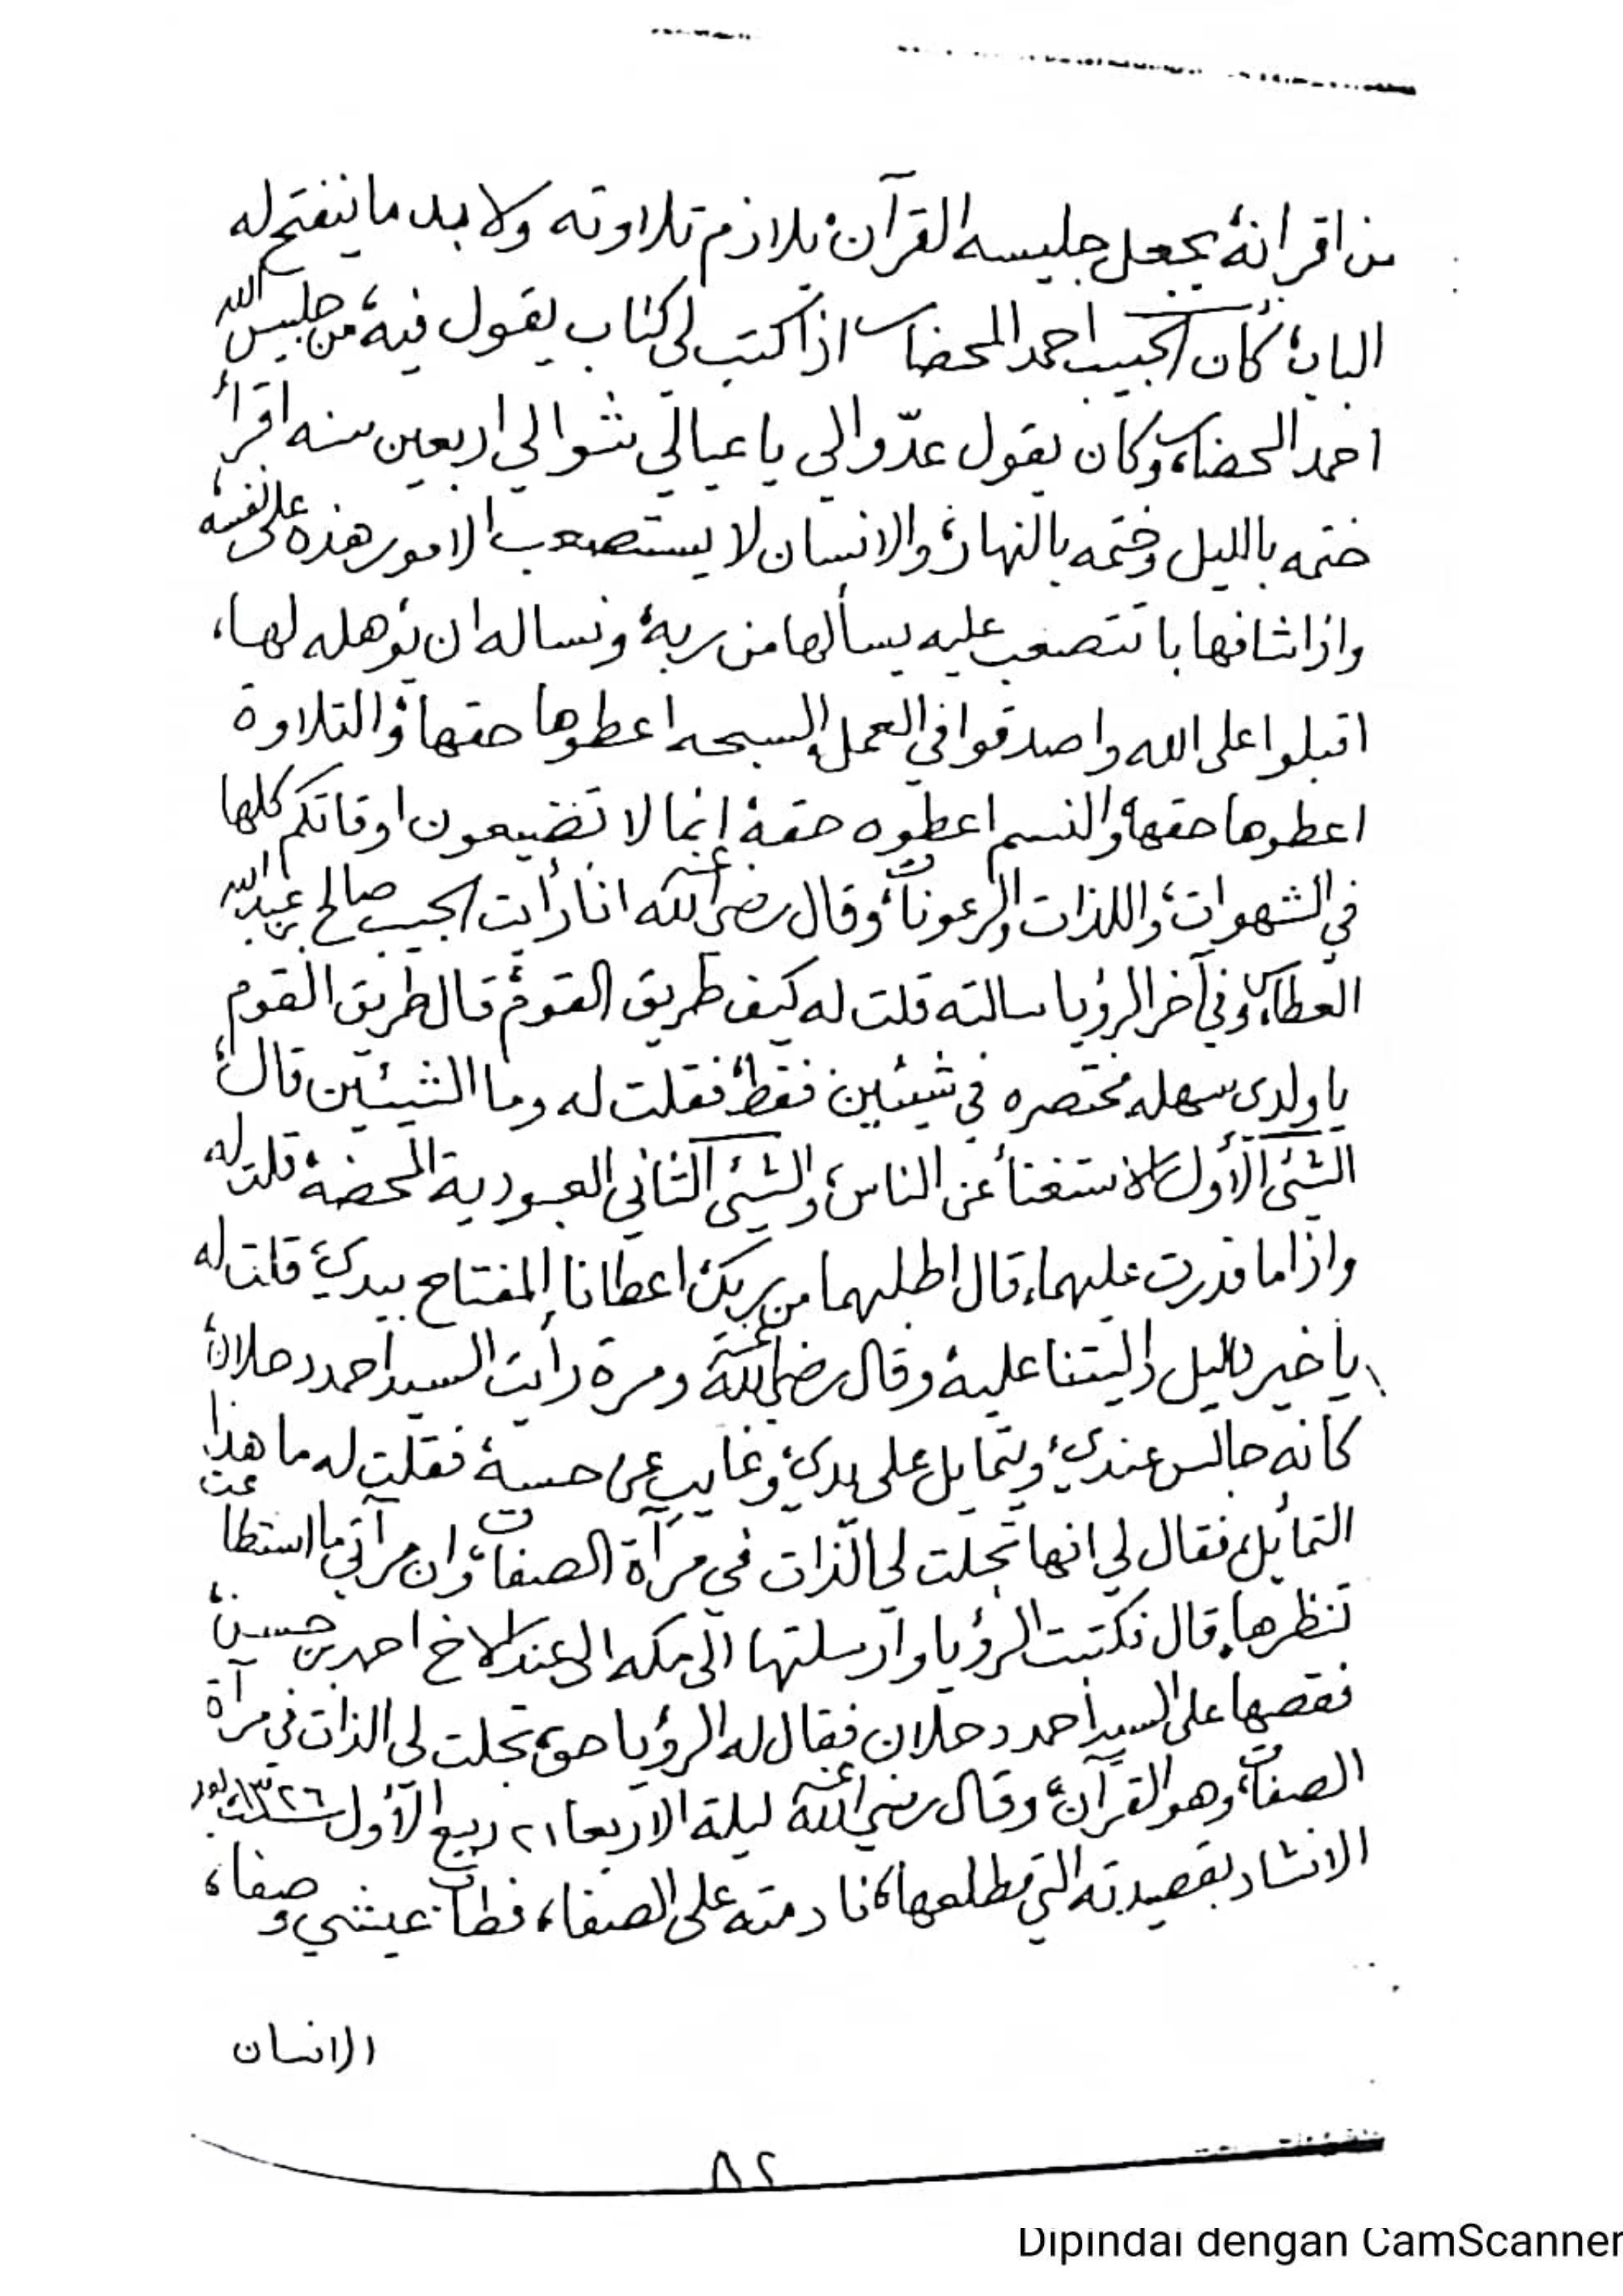 من اقرانه، يجعل جليسه القرآن، يلازم تلاوته ولا بد ما ينفتح له
الباب، كان الحبيب احمد المحضار اذا كتب لي كتاب يقول فيه، من جليس الله
احمد المحضار، وكان يقول عدّوا لي يا عيالي شوا لي اربعين سنه اقرأ
ختمه بالليل وختمه بالنهار، والانسان لا يستصعب الامور هذه على نفسه،
واذا شافها باتتصعب عليه يسألها من ربه، ونساله ان يؤهله لها،
اقبلوا على الله واصدقوا في العمل، السبحه اعطوها حقها، والتلاوة
اعطوها حقها، والنسم اعطوه حقه، إنما لا تضيعون اوقاتكم كلها
في الشهوات، واللذات والرعونات، وقال رضي الله عنه انا رأيت الحبيب صالح بن عبدالله
العطاس، وفي آخر الرؤيا سالته قلت له كيف طريق القوم، قال طريق القوم
يا ولدى سهله مختصره في شيئين فقط، فقلت له وما الشيئين قال،
الشئ الأول الاستغنأ عن الناس، والشئ الثاني العبودية المحضه، قلت له
واذا ما قدرت عليهما، قال اطلبهما من ربك، اعطانا المفتاح بيدي، قلت له
يا خير دليل دليتنا عليه، وقال رضي الله عنه ومرة رأيت السيد احمد دحلان،
كانه جالس عندي، ويتمايل على يدي، وغايب عن حسه، فقلت له ما هذا
التمايل، فقال لي انها تجلت لي الذات في مرآة الصفات، وان مرآتي ما استطاعت
تنظرها، قال فكتبت الرؤيا وارسلتها الى مكه الى عند الاخ احمد بن حسن،
فقصها على السيد أحمد دحلان فقال له الرؤيا حق، تجلت لى الذات في مرآة
الصفات، وهو القرآن، وقال رضي الله عنه ليلة الاربعا ٢١ ربيع الأول سنة ١٣٢٦ بعد
الانشاد بقصيدته التي مطلعها، نادمته على الصفا، فطاب عيشي وصفا،
الانسان
٨٢
Dipindai dengan CamScanner